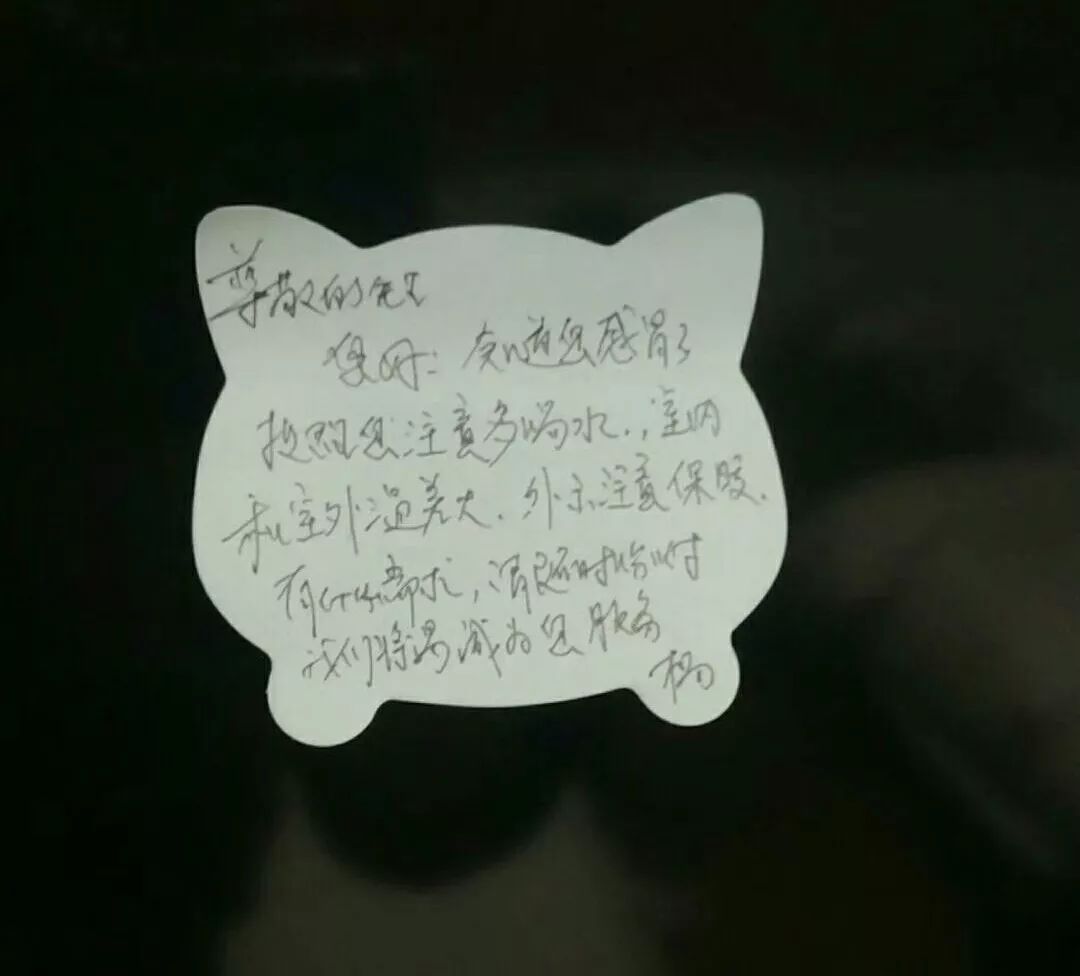 尊敬的先生
您好：知道您感冒了
提醒您注意多喝水.，室内
和室外温差大.外出注意保暖.
有什么需求，请随时吩咐
我们将竭诚为您服务
杨